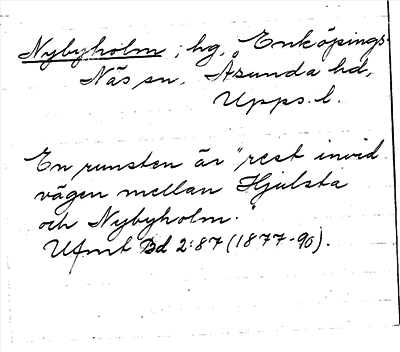 Nybyholm; hg, Enköpings-
Näs sn, Åsunda hd,
Upps. l.
En runsten är "rest invid
vägen mellan Hjulsta
och Nybyholm."
Ufmt Bd 2:87 (1877-90).